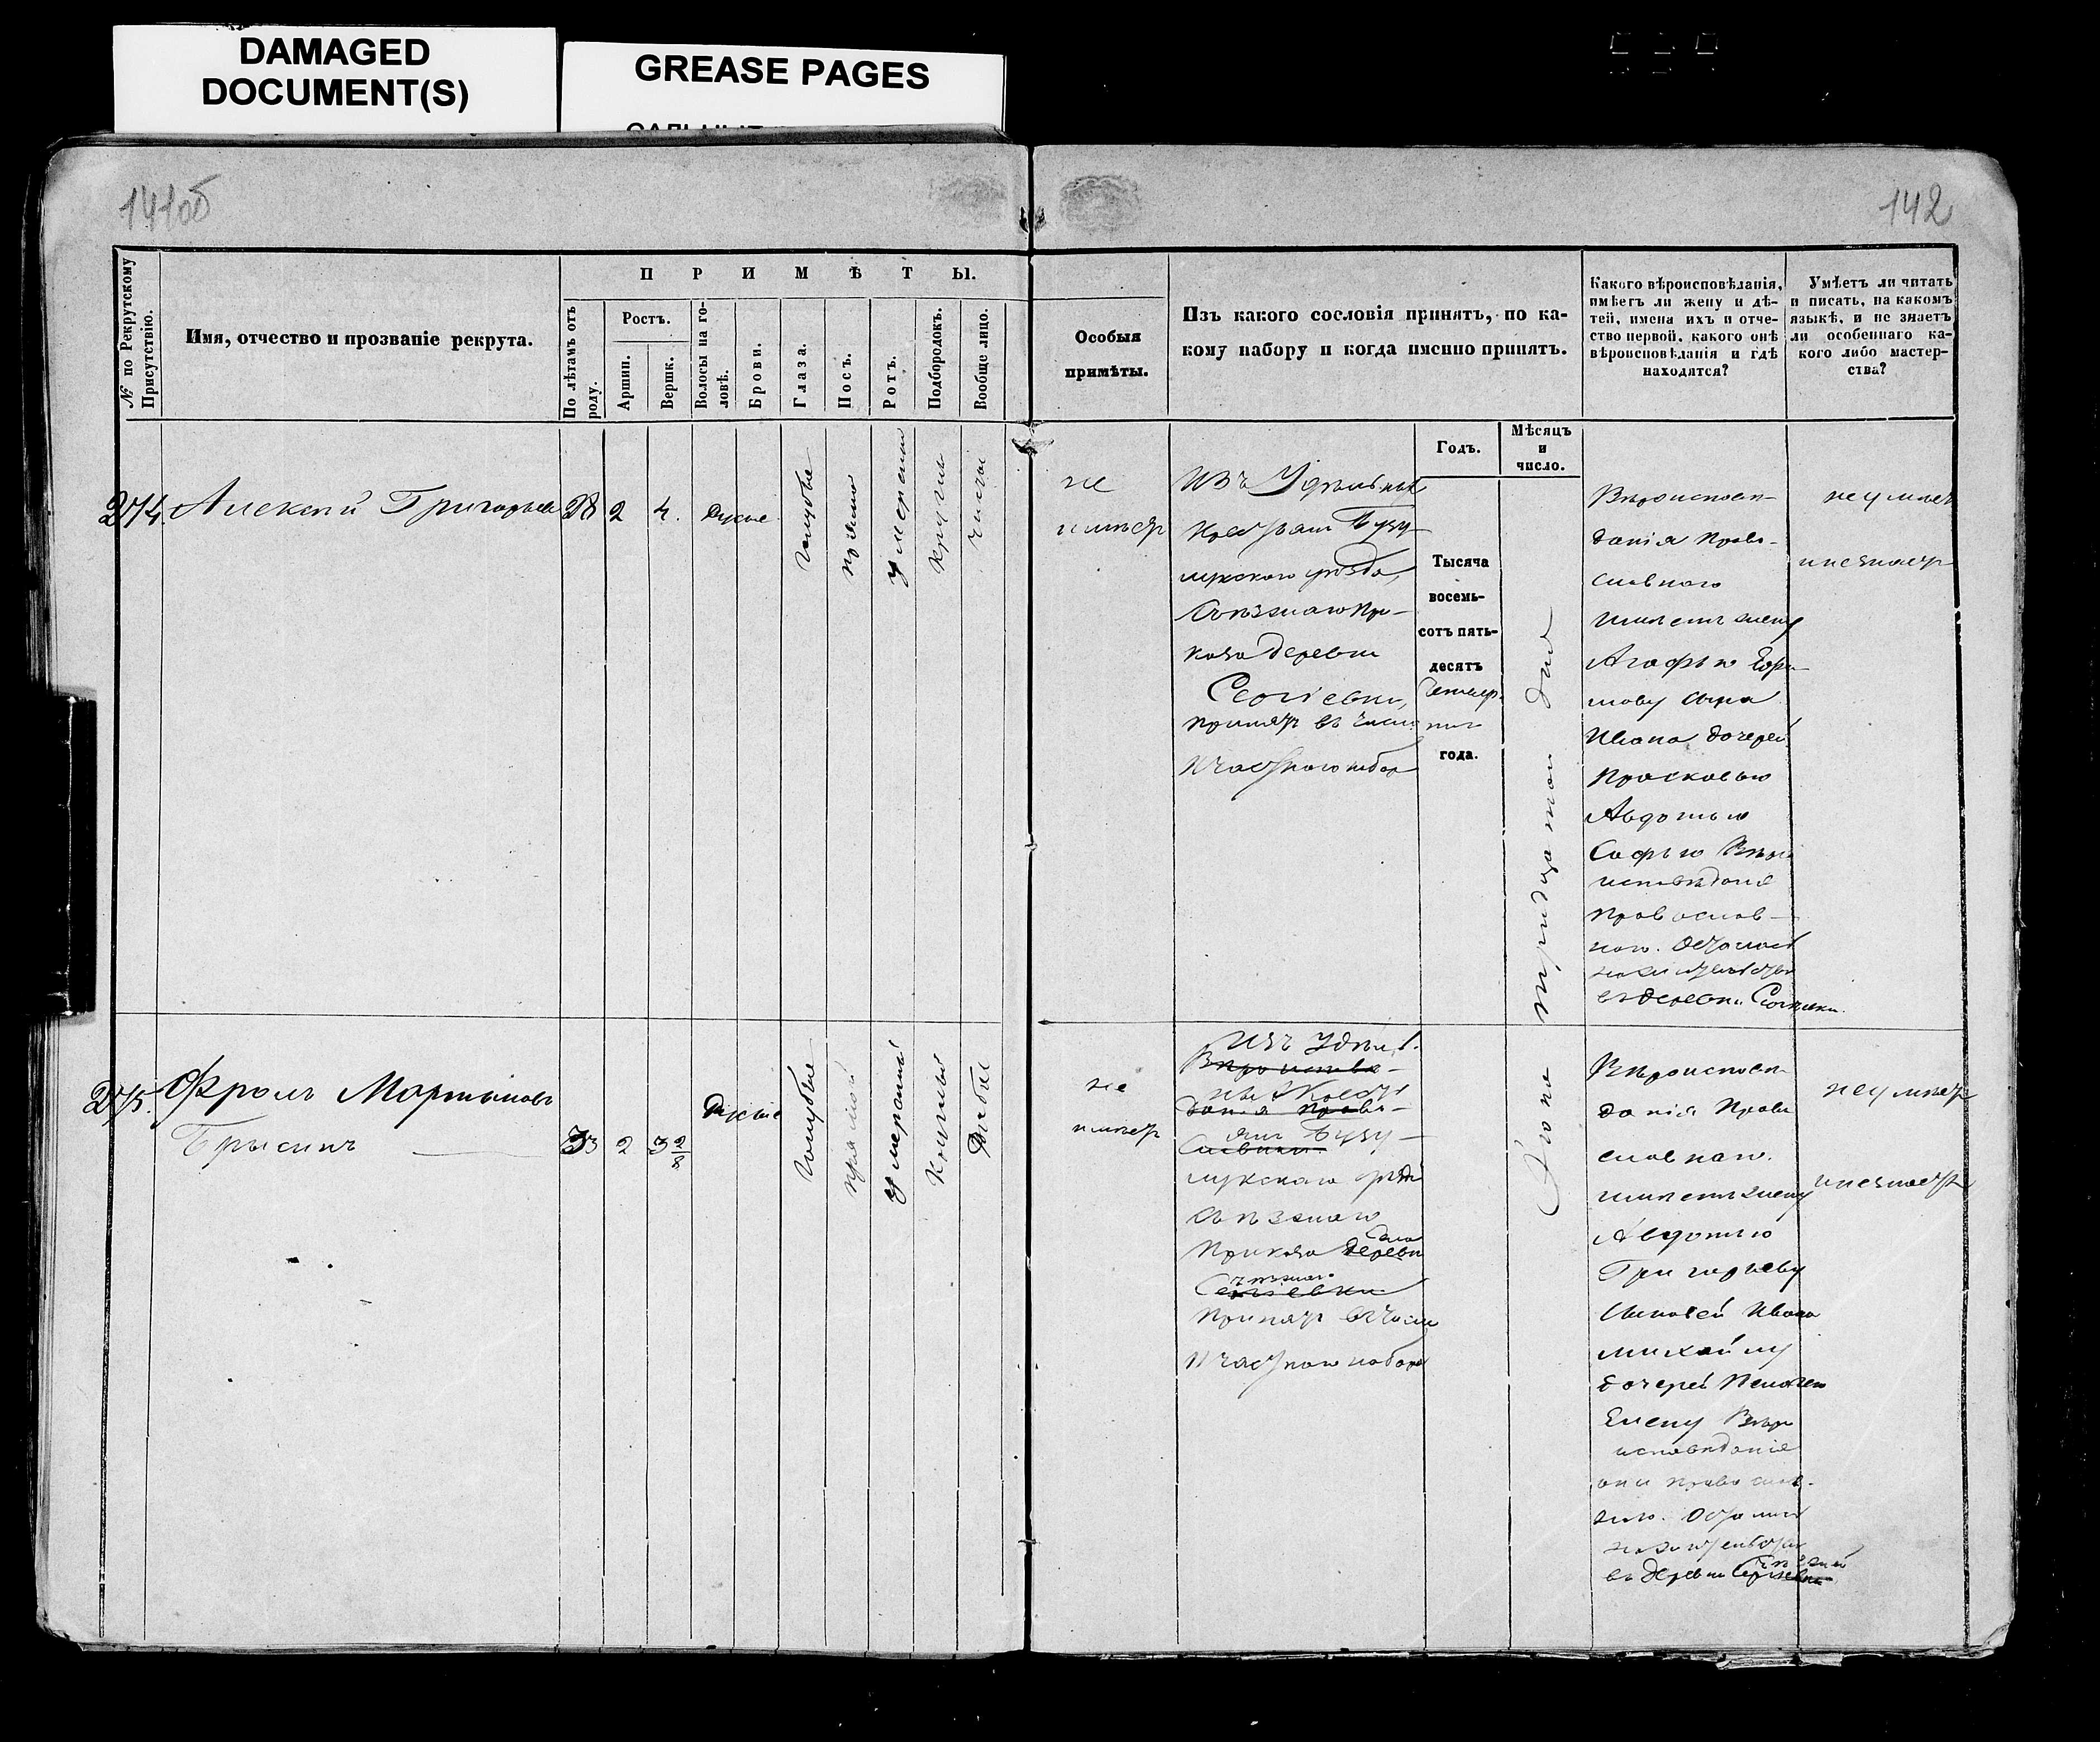 DAMAGED
DOCUMENT(S)
GREASE PAGES
141об
142
№ по Рекрутскому
Присутствію.
Имя, отчество и прозваніе рекрута.
П Р И М Ѣ Т Ы.
По лѣтамъ отъ
роду.
Ростъ.
Аршин.
Вершк.
Волосы на го-
ловѣ.
Брови.
Глаза.
Носъ.
Ротъ.
Подбородокъ.
Вообще лицо.
Особыя
примѣты.
Изъ какого сословія принятъ, по ка-
кому набору и когда именно принятъ.
Какого вѣроисповѣданія,
имѣетъ ли жену и дѣ-
тей, имена ихъ и отче-
ство первой, какого онѣ
вѣроисповѣданія и гдѣ
находятся?
Умѣетъ ли читать
и писать, на какомъ
языкѣ, и не знаетъ
ли особеннаго ка-
кого либо мастер-
ства?
Годъ.
Мѣсяцъ
и
число.
274.
Алексѣй Григорьев
28
2
4.
Русые
голубые
прямой
умерен
кругл
чистое
не
имѣет
Изъ Удѣльных
Крестьян Бузу-
лукского уезда,
Съезжаго При-
каза деревни
Сергіевки,
принят въ число
Участкового набор
Тысяча
восемь-
сотъ пять-
десятъ
четвер-
таго
года.
Іюня тридцатого дня
Вѣроиспов-
данія Право-
славного
имеет жену
Агафью
сына
Ивана дочерей
Прасковью
Авдотью
Софью Вѣро
исповѣданія
Православ-
ного.
жительство
въ деревни Сергіевки.
не умѣет
и не знает
275.
Фролъ Мартыновъ
Брысинъ
33
2
3 2/8
Русые
голубые
прямой
умеренный
круглый
Рябое
не
имѣет
Изъ Удѣл.
Вѣроисповѣ-
ных Кресть
данія Право-
ян Бузу-
Славнаго
лукскаго уѣзда
Съѣзжаго
Приказа деревни
Сергіевки
Принят въ число
Участкового набора
Вѣроиспов-
данія Право
славнаго.
имеет жену
Авдотью
Григорьеву
Сыновей Ивана
Михайлу
дочерей Пелагею
Елену Вѣро
исповѣданіе
они православ-
въ деревни Сергіевки
не умѣет
и не знает